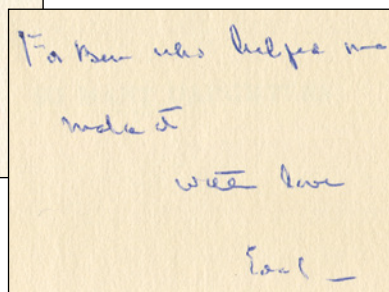 For Ben who helped me
make it
with love